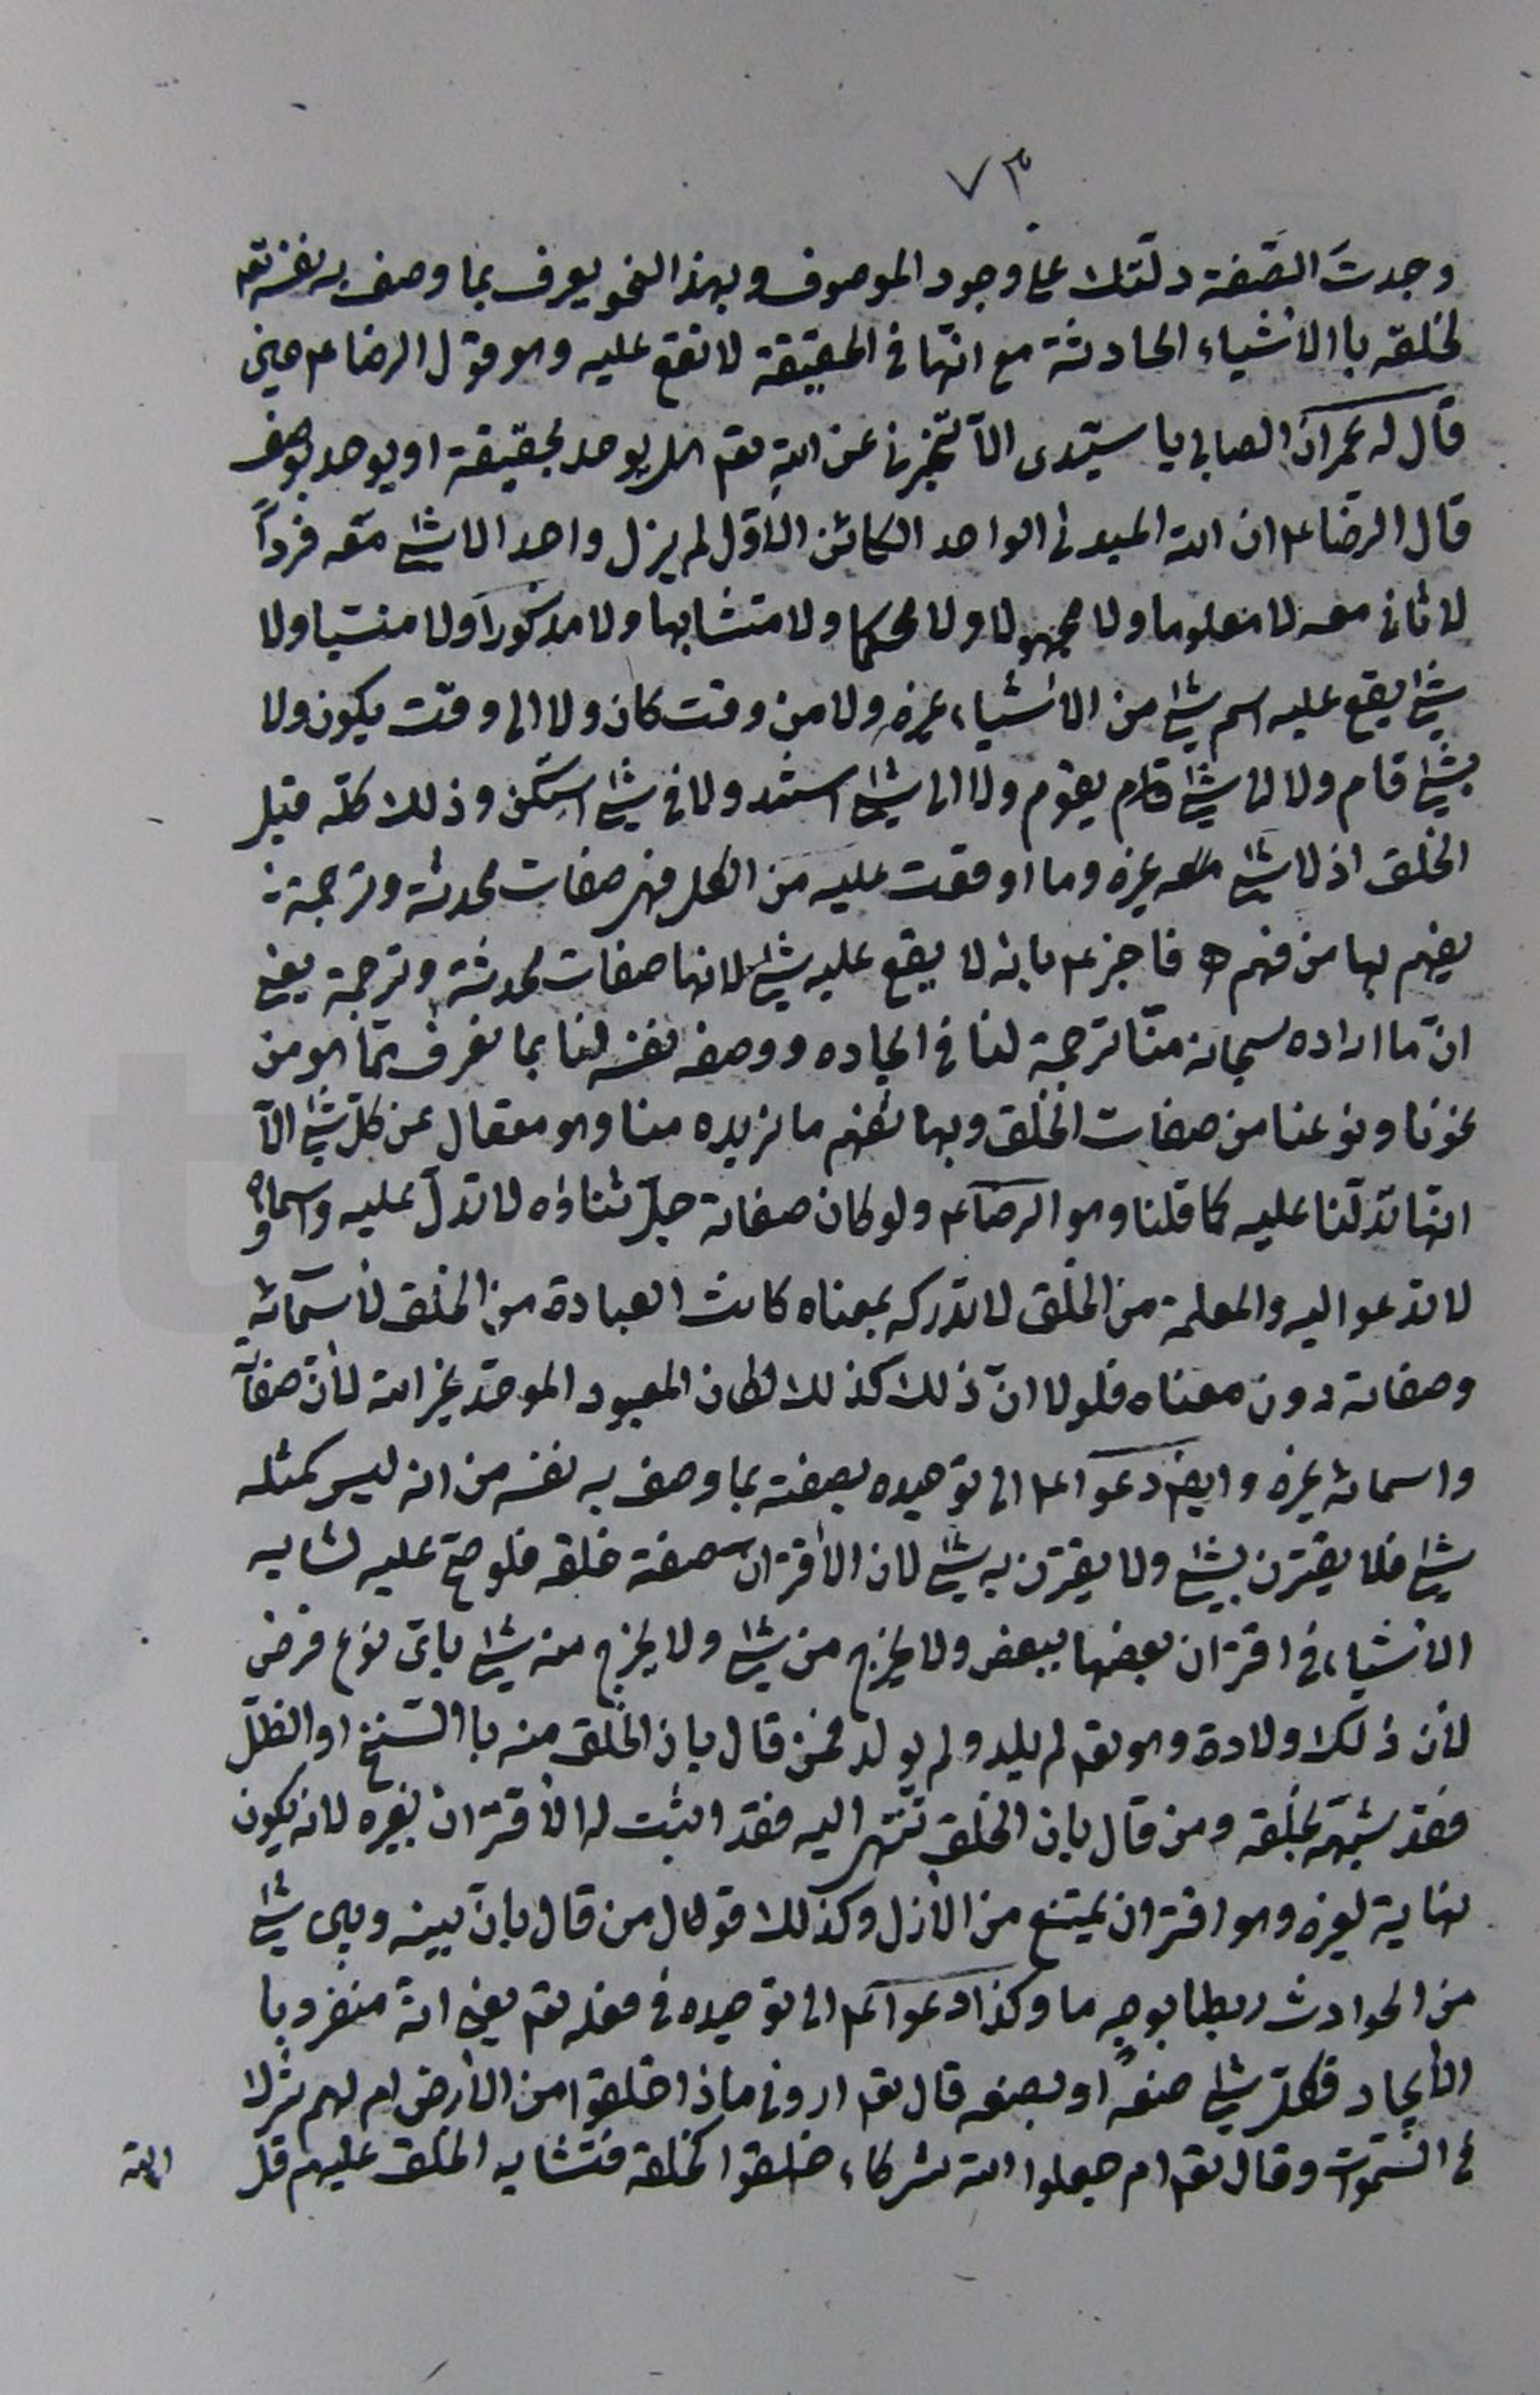 ٧٣
وجدتَ الصّفة دلّتك على وجود الموصوف وبهذا النحو يعرف بما وصف به نفسه تعم
لخلقه باالأشياء الحادثة مع انّها فى الحقيقة لا تقع عليه وهو قول الرضا عم حين
قال له عمران الصابى يا سيّدى الا تخبرنى عن الله تعم هل يوحد بحقيقة او يوحد بوصف
قال الرضا عم ان الله المبدئ الواحد الكائن الأوّل لم يزل واحدا لا شئ معه فرداً
لا ثانى معه لا معلوما ولا مجهولا ولا محكما ولا متشابها ولا مذكوراً ولا منسيا ولا
شيئا يقع عليه اسم شئ من الأشياء غيره ولا من وقت كان ولا الى وقت يكون ولا
بشئ قام ولا الى شئ يقوم ولا الى شئ استند ولا فى شئ استكن وذلك كلّه قبل
الخلق اذ لا شئ معه غيره وما اوقعت عليه من الكل فهى صفات محدثة وترجمة
يفهم بها من فهم ه فاخبر عم بانه لا يقع عليه شئ لانها صفات محدثة وترجمة يعنى
انّ ما اراده سبحانه منّا ترجمة لنا فى ايجاده ووصف نفسه لنا بما نعرف ممّا هو من
نحونا ونوعنا من صفات الخلق وبها نفهم ما يريده منا وهو متعال عن كلّ شئ الّا
انّها تدلّنا عليه كما قلنا وهو الرضا عم ولو كان صفاته جلّ ثناؤه لا تدلّ عليه واسماؤه
لا تدعوا اليه والمعلمة من الخلق لا تدركه بمعناه كانت العبادة من الخلق لأسمائه
وصفاته دون معناه فلولا انّ ذلك كذلك لكان المعبود الموحّد غير الله لأن صفاته
واسمائه غيره وايضا دعوا عم الى توحيده بصفته بما وصف به نفسه من انه ليس كمثله
شئ فلا يقترن بشئ ولا يقترن به شئ لان الأقتران صفة خلقه فلو صحّ عليه لشابه
الأشياء فى اقتران بعضها ببعض ولا يخرج من شئ ولا يخرج منه شئ باىّ نوع فرض
لأن ذلك ولادة وهو تعم لم يلد ولم يولد فمن قال بان الخلق منه باالسّنخ او الظلّ
فقد شبّهه بخلقه ومن قال بان الخلق تنتهى اليه فقد اثبت له الأقتران بغيره لانه يكون
نهاية لغيره وهو اقتران يمتنع من الأزل وكذلك قول من قال بانّ بينه وبين شئ
من الحوادث ربطا بوجه ما وكذا دعوا عم الى توحيده فى فعله تعم يعنى انه منفرد با
الأيجاد فكلّ شئ صنعه او بصنعه قال تعم ارونى ماذا خلقوا من الأرض ام لهم شرك
فى السّموات وقال تعم ام جعلوا الله شركاء خلقوا كخلقه فتشابه الخلق عليهم قل
الله